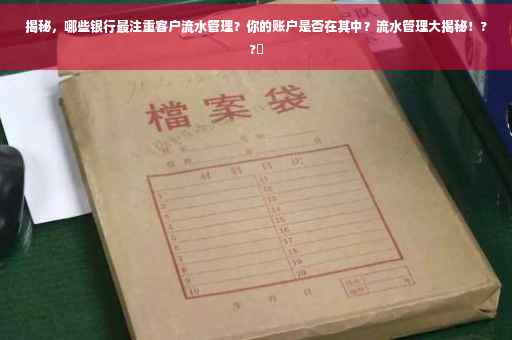 揭秘，哪些银行最注重客户流水管理？你的账户是否在其中？流水管理大揭秘！?
?
檔案袋
材料目次
1 11
2 12
3 13
4 14
5 15
6 16
7 17
8 18
9 19
10 20
年 月 日